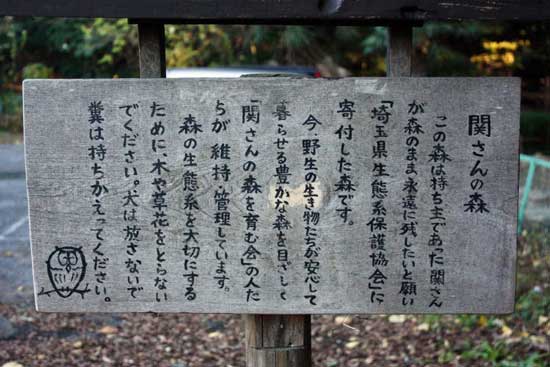 関さんの森
この森は持ち主であった関さん
が森のまま永遠に残したいと願い
「埼玉県生態系保護協会」に
寄付した森です。
今野生の生き物たちが安心して
暮らせる豊かな森を目ざして
「関さんの森を育む会」の人た
ちが維持・管理しています。
森の生態系を大切にする
ために、木や草花をとらない
でください。犬は放さないで
糞は持ちかえってください。